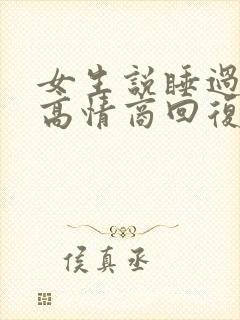 女生說睡過
高情商回復
侯真丞